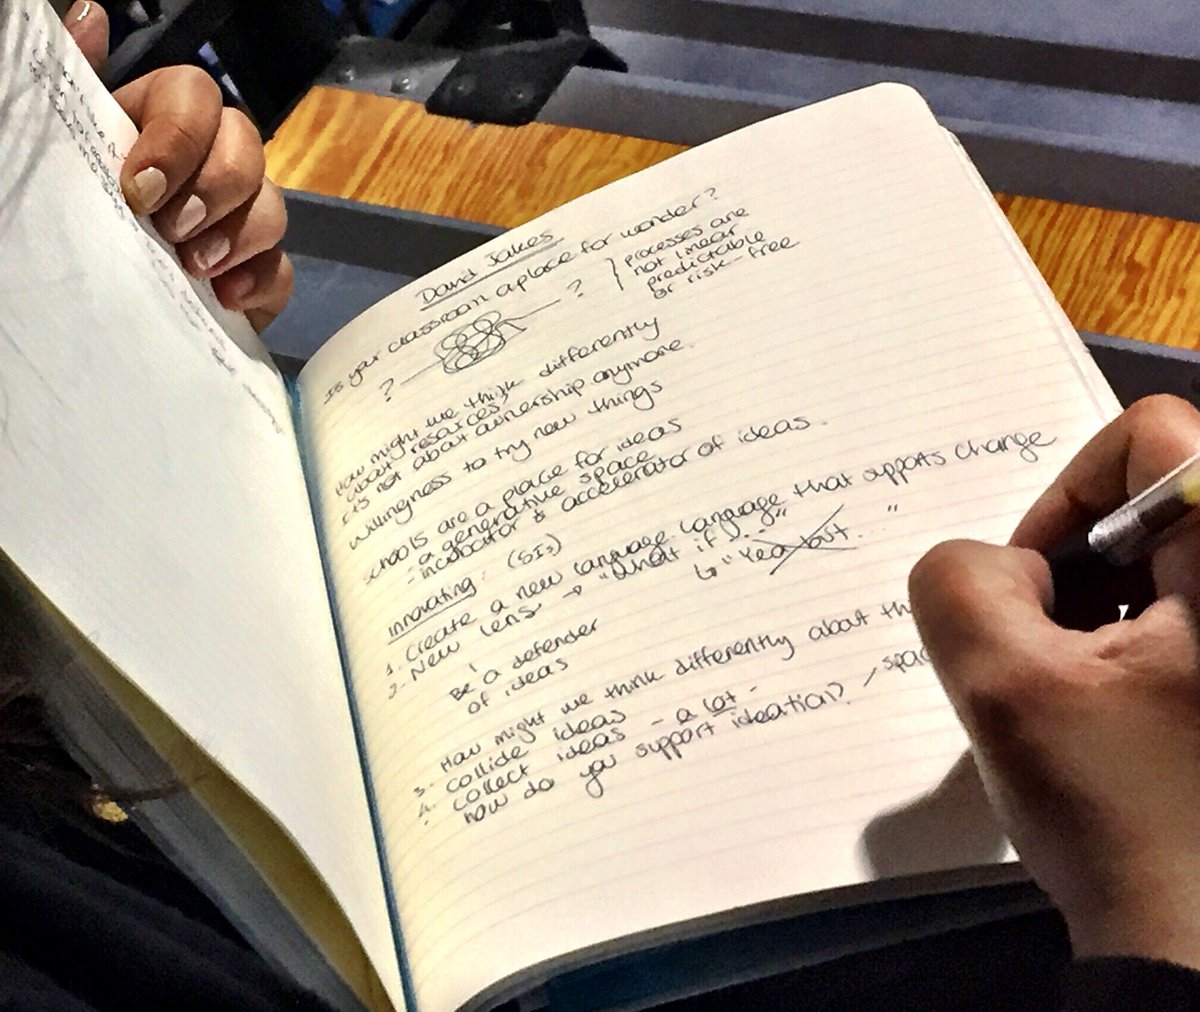 David Jakes
Is your classroom a place for wonder?
? ?
} processes are
not linear
predictable
or risk-free
How might we think differently
about resources,
Its not about ownership anymore.
Willingness to try new things
Schools are a place for ideas
- a generative space
- incubator & accelerator of ideas.
Innovating: (SI3)
1. Create a new language language that supports change
2. New lens → "What if..."
↳ "Yea but..."
Be a defender
of ideas
3. How might we think differently about th
4. collide ideas
collect ideas - a lot -
how do you support ideation? / spac